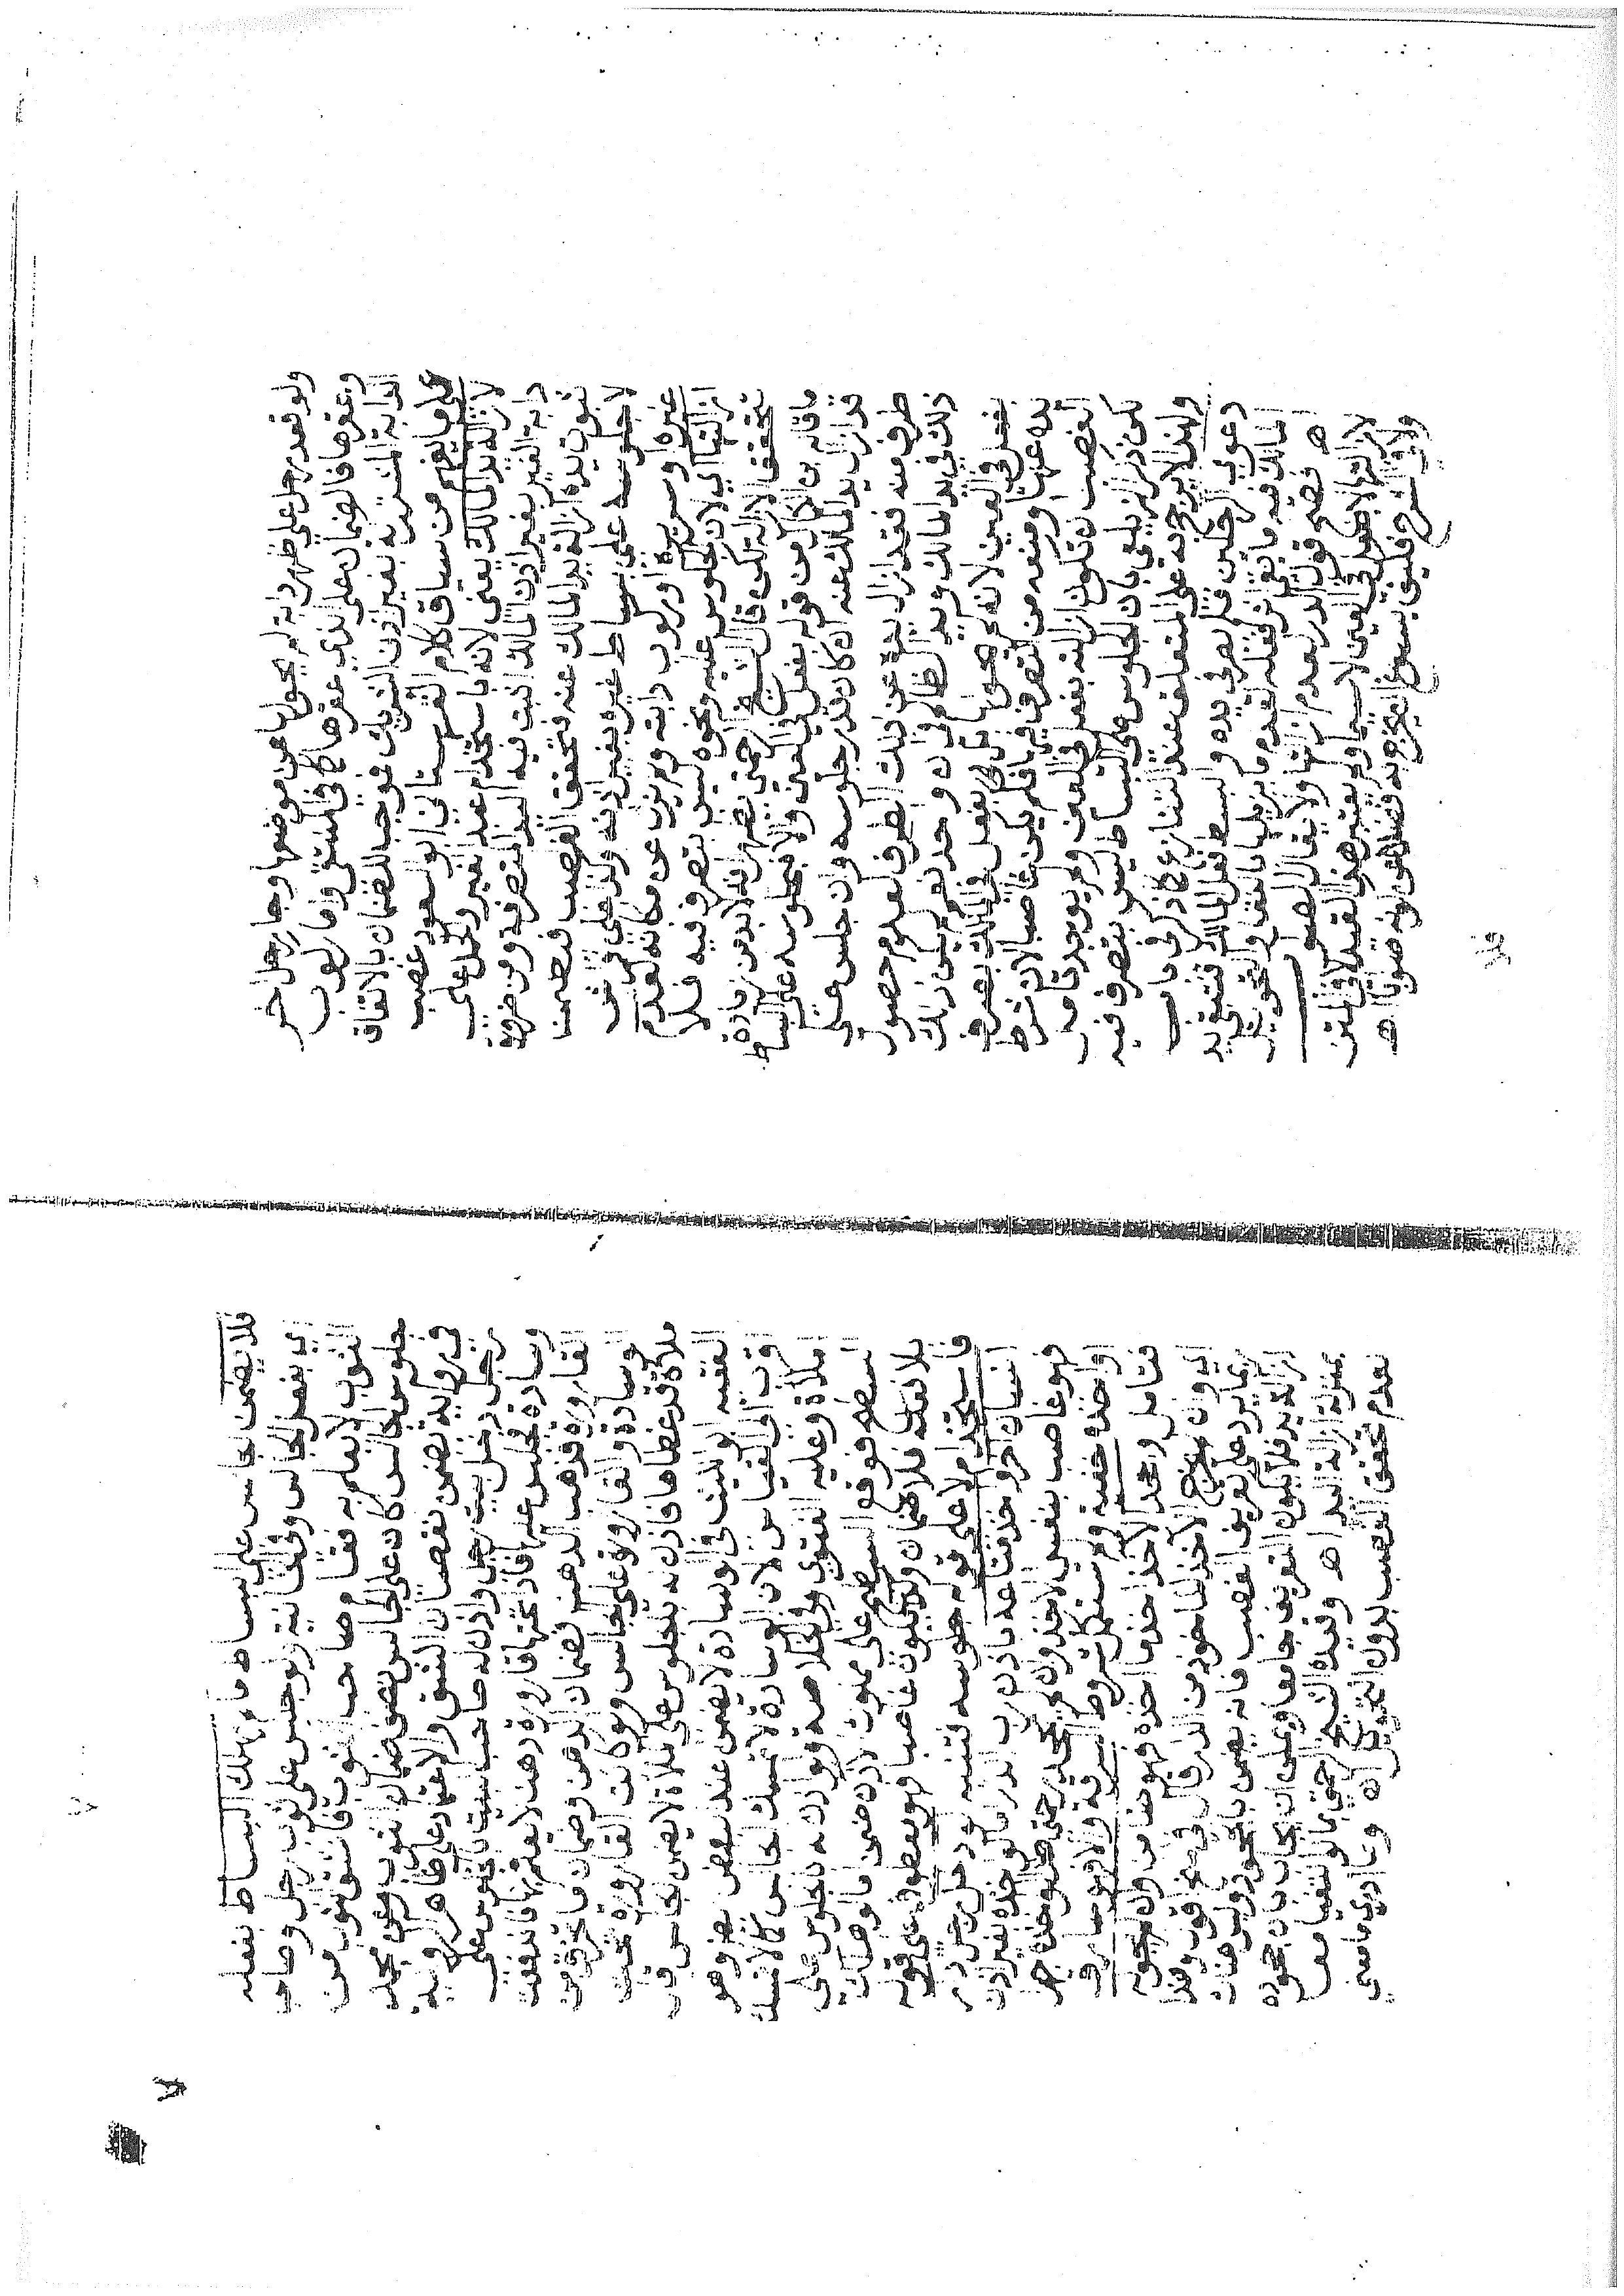 ولو قعد رجل على ظهر دابة لم يحولها عن موضعها وجا رجل اخر
وعقرها فالضمان على الذي عقرها كما في المنتقى واما ركوب
الدابة المشتركة بغير اذن الشريك فموجب للضمان بالاتفاق
على ما يفهم من سياق كلام القهستاني ابو السعود غصب
لازالة يد المالك يعني لانه باستخدام عبد الغير والحمل على
دابة الغير بغير اذن المالك اثبت فيه اليد المتصرفة ومن ضرورة
ثبوت يده ازالة يد المالك عنه فتحقق الغصب فتضمن
لا جلوسه على بساط غيره بغير اذنه وكذا على فراش
غيره او سريره او ركوب دابته ولم يزل عن مكانه لعدم
ازالتها اي لان الجلوس عليه ونحوه ليس بتصرف فيه فلا
يتحقق الازالة لكن قال الشيخ الرحمتي يظهر انه لابد من زيادة
ما قاله بن الكمال من قوله بفعل في العين والا فبجلوسه على البساط
قد ازال يد المالك عنه ان كان قدر جلوسه وان جلس على
طرف منه فقد ازال يده عن ذلك الطرف لعدم حصول
ذلك في يد المالك ويد الظالم في ان واحد نعم لم يكن ذلك
بفعل في العين لانه لم يحولها بل بفعل في المالك بصرف
يده عنها ومنعه من التصرف فيها فلم يكن غاصبا لان شرط
الغصب ان تكون ازالته بفعل في العين ولم يوجد تامل
لكن ذكر الزيلعي بان الجلوس على البساط ليس بتصرف فيه
ولهذا لا يرجح به على المتعلق عند التنازع كما ذكر في باب
دعوى الرجلين فلم يصر في يده والبسط فعل المالك فتبقى يد
المالك فيه ما بقي اثر فعله لعدم ما يزيلها بالنقل والتحويل
اه فصح قول الدرر لعدم ازالتها ولا يقال الصواب
لازالتها لا بفعل في العين لا سيما ولم يعتبر هذا القيد لا في المتن
ولا في الشرح فكيف يسوغ الجزم به فضلا عن كونه صوابا اه
فلا
فلا يضمن الجالس على البساط ما لم يهلك البساط بفعله
اي بفعل الجالس وفي الخانية ولو جلس على ثوب رجل وصاحب
الثوب لا يعلم به فقام صاحب الثوب فانشق الثوب من
جلوس الجالس كان على الجالس نصف ضمان الثوب وعن محمد
في رواية يضمن نقصان الشق والاعتماد على ظاهر الرواية
رجل دخل بيت رجل واذن له صاحب البيت بالجلوس على
وسادة فجلس عليها فاذا تحتها قارورة دهن لا يعلم بها فاندفقت
القارورة فذهب الدهن فضمان الدهن وضمان ما تخرق من
الوسادة والقارورة على الجالس ولو كانت القارورة تحت
ملاءة قد غطاها فاذن له بالجلوس على الملاءة لا يضمن الجالس قال
الفقيه ابو الليث في الوسادة لا يضمن عند البعض ايضا وهو
اقرب الى القياس لان الوسادة لا تمسك الجالس كما لا تمسك
الملاءة وعليه الفتوى وفي الخلاصة ولو اذن له بالجلوس على
السطح فوقع السطح على مملوك الاذن ضمن ما لو هلك
بلا فعله فلا ضمان ولا يكون غاصبا فهو معطوف على قوله
فاستخدام لا على قوله جلوسه فتنبه لو دخل رجل دار
انسان اخر واخذ متاعه باذن رب الدار اما لو اخذه بغير اذن
فهو غاصب بنفس الاخذ وان لم يجحد حتى لو اخذه جهرا
او اخذه خفية ولم تستكمل شروط السرقة والا فهو سارق
فتامل وجحد الاخذ اخذ ما اخذه فهو ضامن وان لم يحوله
اي وان لم يحول الاخذ للماخوذ من الدار قال في غرر الافكار وهذا
ربما يرد على تعريف الغصب فانه يضمن بالجحود وليس هناك
ازالة يد فلا يكون التعريف جامعا ويمكن ان يجاب بان جحوده
بمنزلة ازالة اليد اه وقيده الشيخ الرحمتي بالتغيب فقال
لعدم تحقق الغصب بدون التحويل اه وما ادري ما معنى